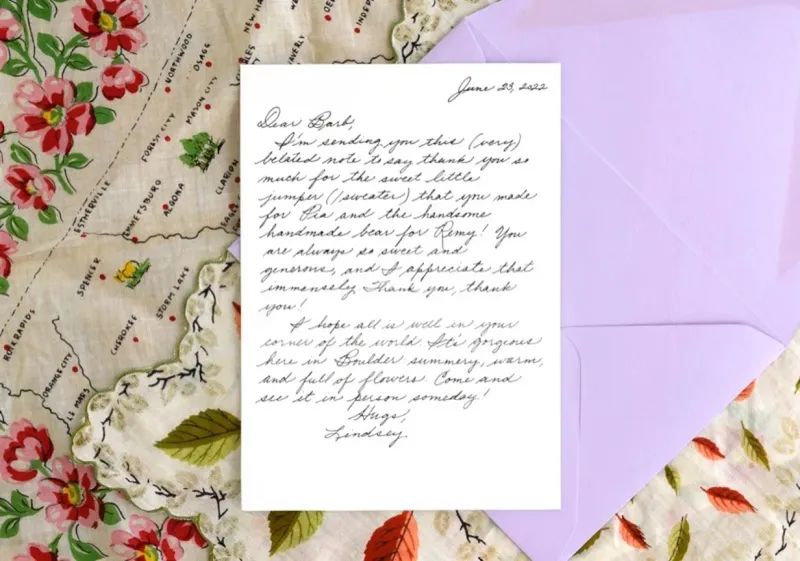 June 23, 2022
Dear Barb,
I'm sending you this (very)
belated note to say thank you so
much for the sweet little
jumper (/sweater) that you made
for Pia and the handsome
handmade bear for Remy! You
are always so sweet and
generous, and I appreciate that
immensely. Thank you, thank
you!
I hope all is well in your
corner of the world. It's gorgeous
here in Boulder summery, warm,
and full of flowers. Come and
see it in person someday!
Hugs,
Lindsey
NORTHWOOD
OSAGE
MASON CITY
FOREST CITY
CLARION
ALGONA
EMMETSBURG
ESTHERVILLE
EAGLE
SPENCER
STORM LAKE
CHEROKEE
ROCK RAPIDS
ORANGE CITY
LE MARS
NEW HA
WAVERLY
INDEPEN